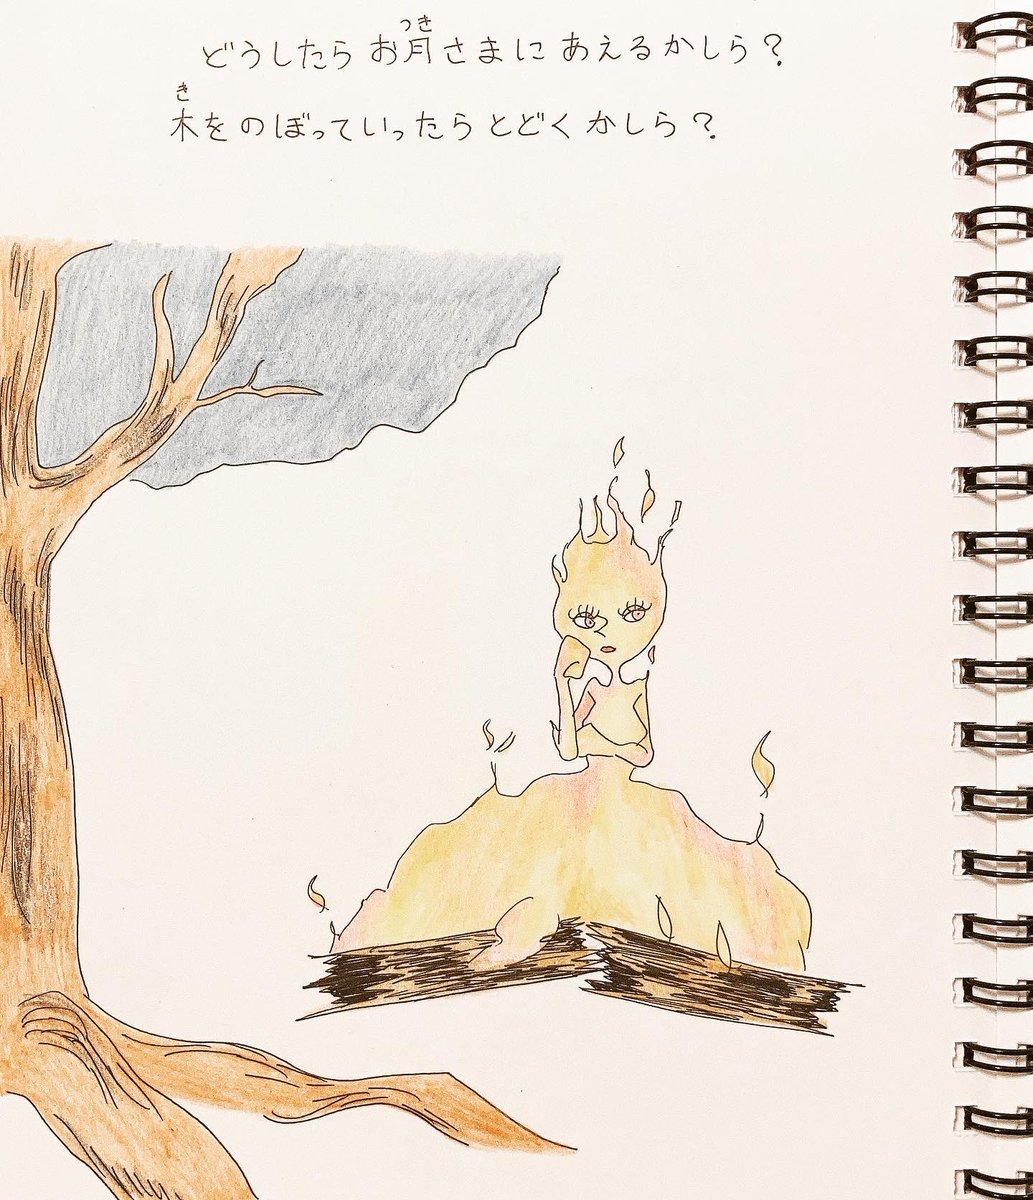 どうしたら お月さまに あえるかしら？
木を のぼっていったら とどくかしら？
つき
き